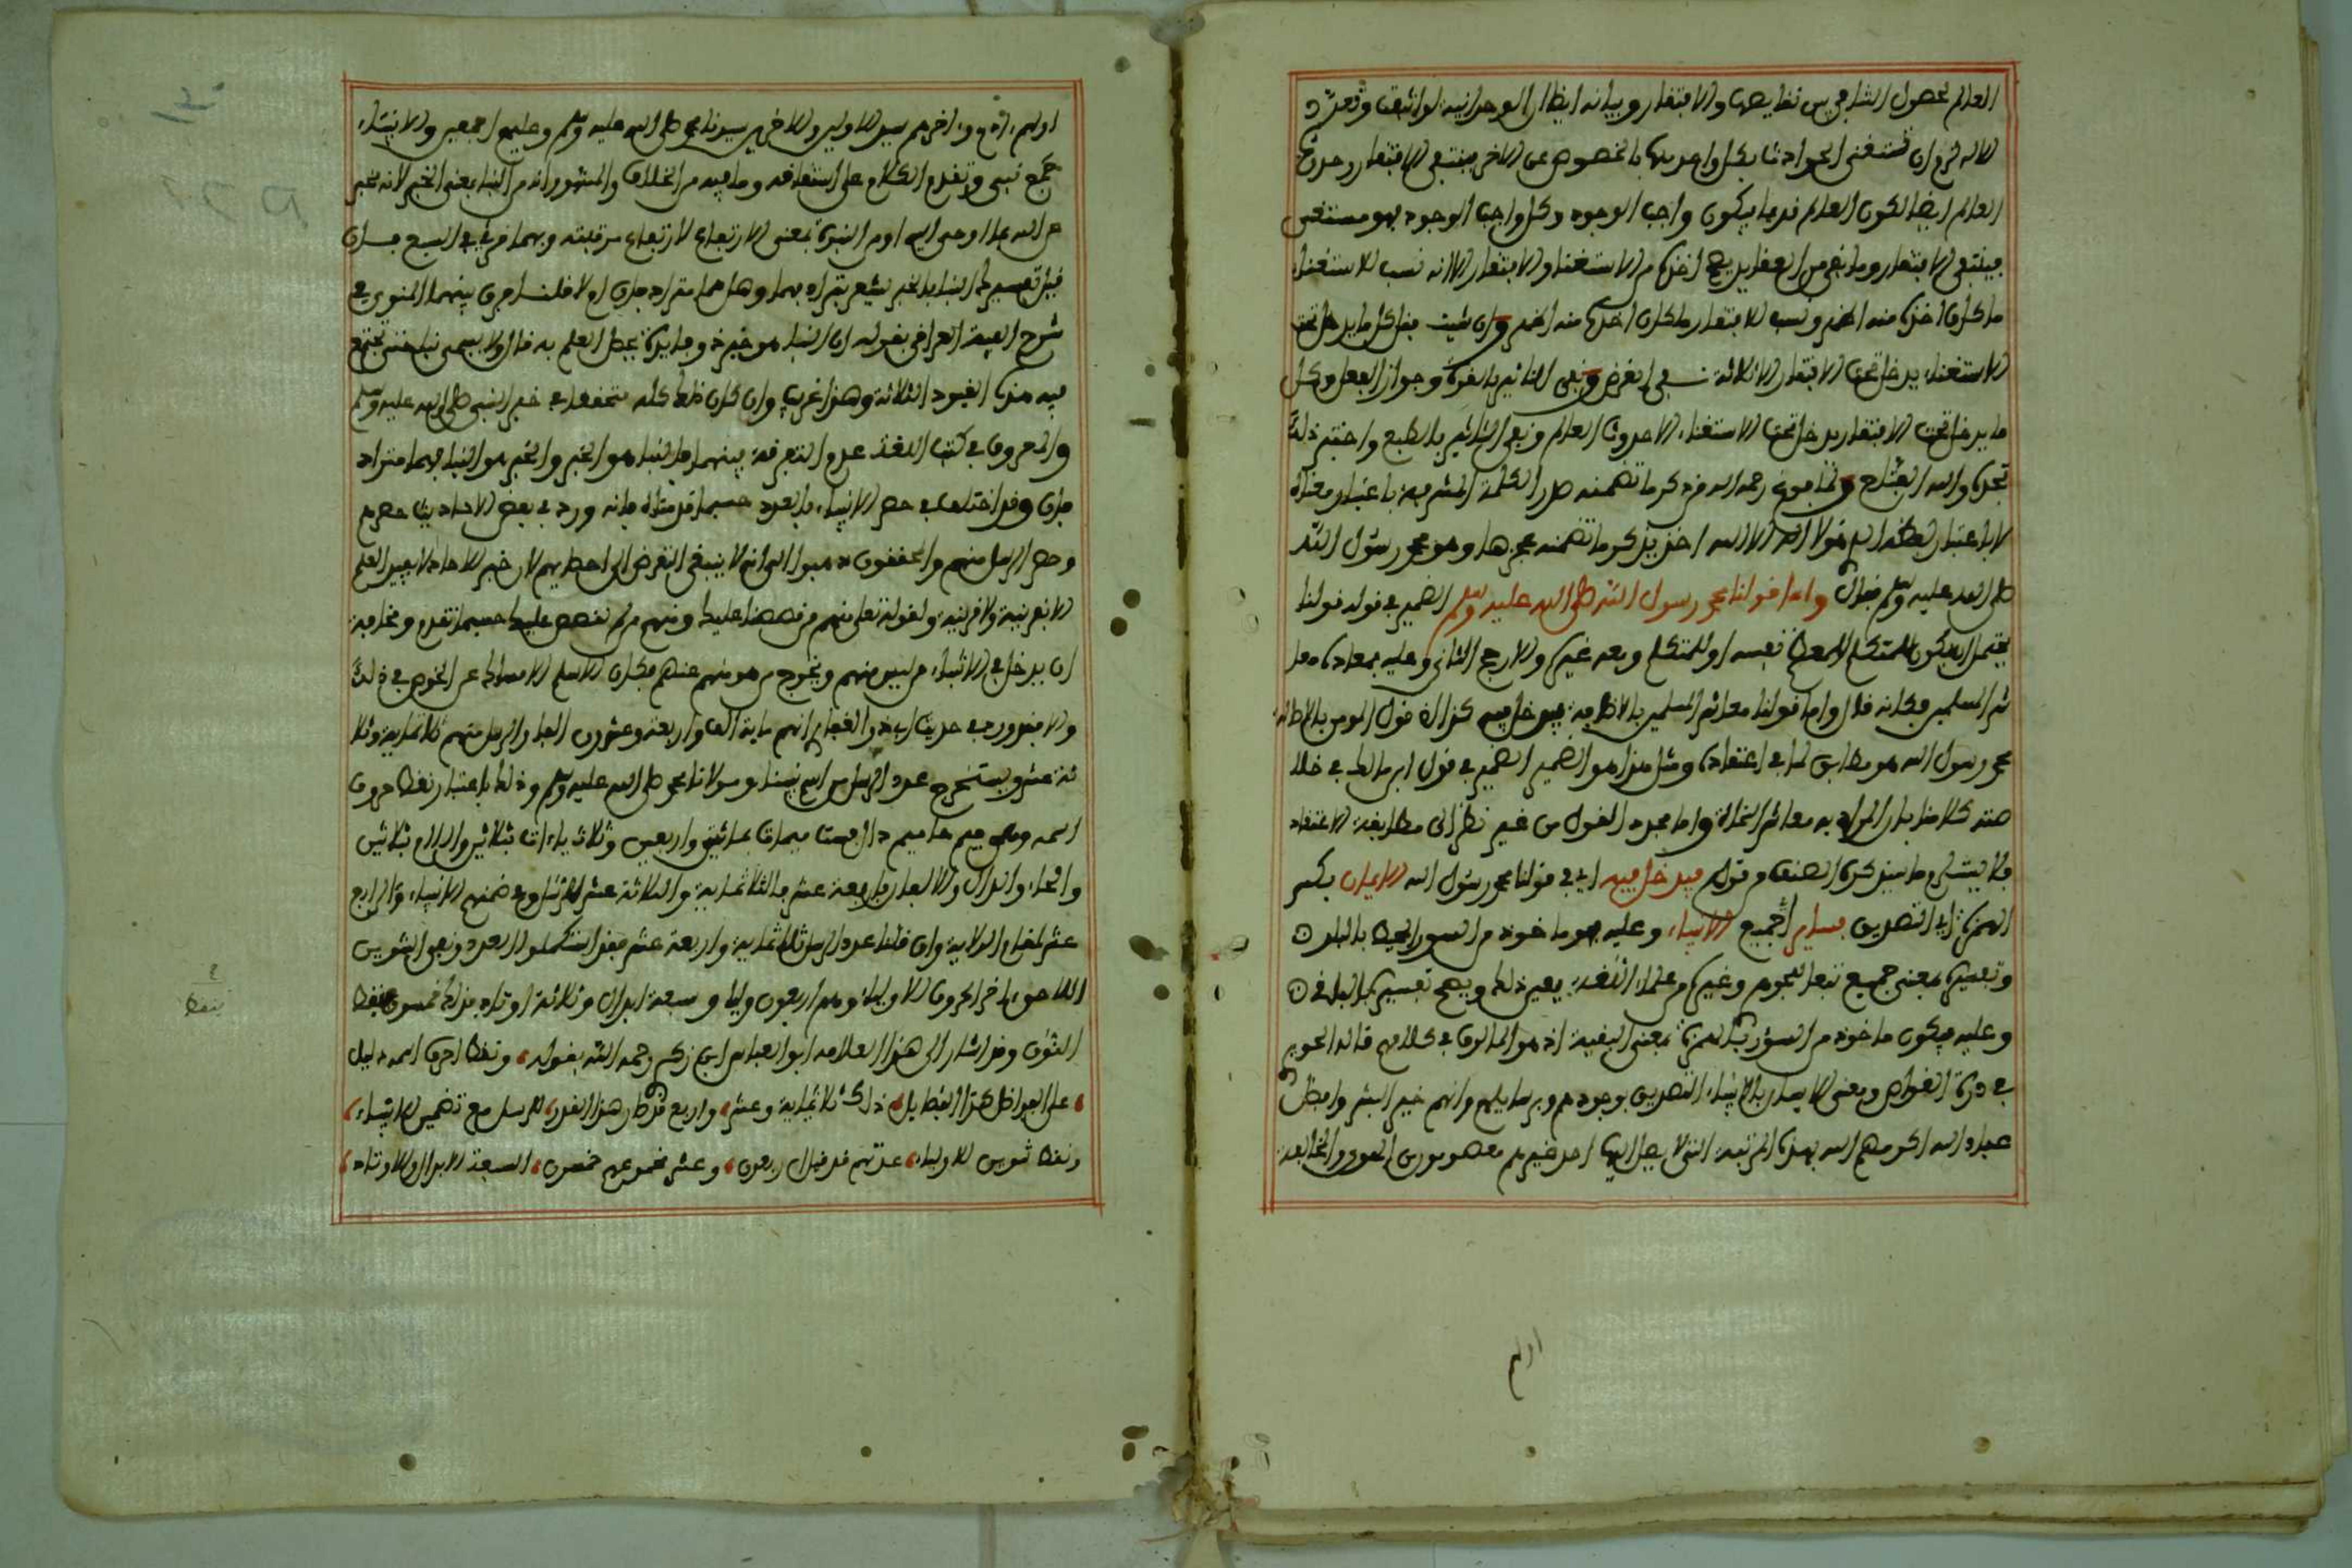 العالم لحصول الشاهد بين نقايصها والافتقار وبيانه ايضا ان الوحدانية لو انتفت وتعدد
الاله لزم ان تستغني الحوادث بكل واحد منهما بالخصوص عن الاخر فينتفي الافتقار وحدوث
العالم ايضا لكون العالم قديما فيكون واجب الوجود وكل واجب الوجود فهو مستغن
فينتفي الافتقار وما بقي من العقايد يصح اخذها من الاستغناء والافتقار الا انه نسب للاستغناء
ما كان اخذه منه اظهر ونسب للافتقار ما كان اخذه منه اظهر وان شيت فقل كل ما يدخل تحت
الاستغناء يدخل تحت الافتقار الا ثلاثة نفي الغرض ونفي التاثير بالقوة وجواز الفعل وكل
ما يدخل تحت الافتقار يدخل تحت الاستغناء الا حدوث العالم ونفي التاثير بالطبع واختم ذلك
تجده والله الفتاح ولما فرغ رحمه الله من ذكر ما تضمنه صدر الكلمة المشرفة باعتبار معناه
لا باعتبار لفظه الذي هو لا اله الا الله اخذ يذكر ما تضمنه عجزها وهو محمد رسول الله
صلى الله عليه وسلم فقال واما قولنا محمد رسول الله صلى الله عليه وسلم الضمير في قوله قولنا
يحتمل ان يكون للمتكلم المعظم نفسه او للمتكلم ومعه غيره والارجح الثاني وعليه فمعناه معا
شر المسلمين فكانه قال واما قولنا معاشر المسلمين بالاضافة فيدخل فيه كذا لان قول المومن بالاضافة
محمد رسول الله هو مطابق لما في اعتقاده ومثل هذا هو الضمير في قول ابن مالك في خلا
صته كلامنا بان المراد به معاشر النحاة واما مجرد القول من غير نظر الى مطابقة الاعتقاد
فلا يتنزل ما سيذكره المصنف من قوله فيدخل فيه اي في قولنا محمد رسول الله الايمان بكسر
الهمزة اي التصديق بساير اي جميع الانبياء وعليه فهو ماخوذ من السور المحيط بالبلد
وتفسيره بمعنى جميع تبعا للجوهري وغيره من علماء اللغة يعين ذلك ويصح تفسيره بالباقي
وعليه فيكون ماخوذ من السؤر بالهمزة بمعنى البقية اذ هو المالوف في كلامهم قاله الحرير
في درة الغواص ومعنى الايمان بالانبياء التصديق بوجودهم وبرسايلهم وانهم خير البشر وافضل
عباد الله اكرمهم الله بهذه المرتبة التي لا يصل اليها احد غيرهم معصومون من الهوى والمخالفة
اولهم
اولهم ءادم وءاخرهم سيد الاولين والاخرين سيدنا محمد صلى الله عليه وسلم وعليهم اجمعين والانبياء
جمع نبي وتقدم الكلام على اشتقاقه وما فيه من الخلاف والمشهور انه من النبا بمعنى الخبر لانه مخبر
عن الله بما اوحى اليه او من النبوة بمعنى الارتفاع لارتفاع مرتبته وبهما قرئ في السبع فان
قيل تفسيرك النبا بالخبر يشعر بترادفهما وهل هما مترادفان او لا قلنا فرق بينهما المنوي في
شرح الفية العراقي بقوله ان النبا هو خبر ذو فايدة يحصل العلم به قال ولا يسمى نبا حتى تجتمع
فيه هذه القيود الثلاثة وهذا غريب وان كان ذلك كله متحققا في خبر النبي صلى الله عليه وسلم
والمعروف في كتب اللغة عدم التفرقة بينهما فالنبا هو الخبر والخبر هو النبا فهما متراد
فان وقد اختلف في حصر الانبياء بالعدد حسبما قدمناه فانه ورد في بعض الاحاديث حصرهم
وحصر الرسل منهم والمحققون ذهبوا الى انه لا ينبغي التعرض الى احصايهم لان خبر الاحاد لا يفيد العلم
الا بقرينة ولا قرينة ولقوله تعلى منهم من قصصنا عليك ومنهم من لم نقصص عليك حسبما تقدم ومخافة
ان يدخل في الانبياء من ليس منهم ويخرج من هو منهم عنهم فكان الاسلم الامساك عن الخوض في ذلك
والا فقد ورد في حديث ابي ذر الغفاري انهم ماية الف واربعة وعشرون الفا والرسل منهم ثلاثماية وثلا
ثة عشر ويستخرج عدد الرسل من اسم نبينا ومولانا محمد صلى الله عليه وسلم وذلك باعتبار لفظ حروف
اسمه وهي ميم حا ميم دال فست ميمات بمائتين واربعين وثلاث ياءات بثلاثين واللام بثلاثين
والحاء والدال والالفان باربعة عشر فالثلاثماية والثلاثة عشر للرسل وفي ضمنهم الانبياء والرابع
عشر لمقام الولاية وان قلنا عدد الرسل ثلاثماية واربعة عشر فقد استكملوا العدد ونفي التنوين
اللاحق باخر الحروف للاولياء وهم اربعون وليا وسبعة ابدال وثلاثة اوتاد فذلك خمسون بلفظ
التنون وقد اشار الى هذا العلامة ابو العباس ابن زكري رحمه الله بقوله ولفظ احرف اسمه دليل
على الفواضل كذا الفضايل ذلك ثلاثماية وعشر واربع قرطار هذا القدر للرسل مع تضمين الانبياء
ولفظ تنوين للاولياء عدتهم قد قيل اربعون وعشر مجموعهم خمسون السبعة الابدال والاوتاد
لفظ